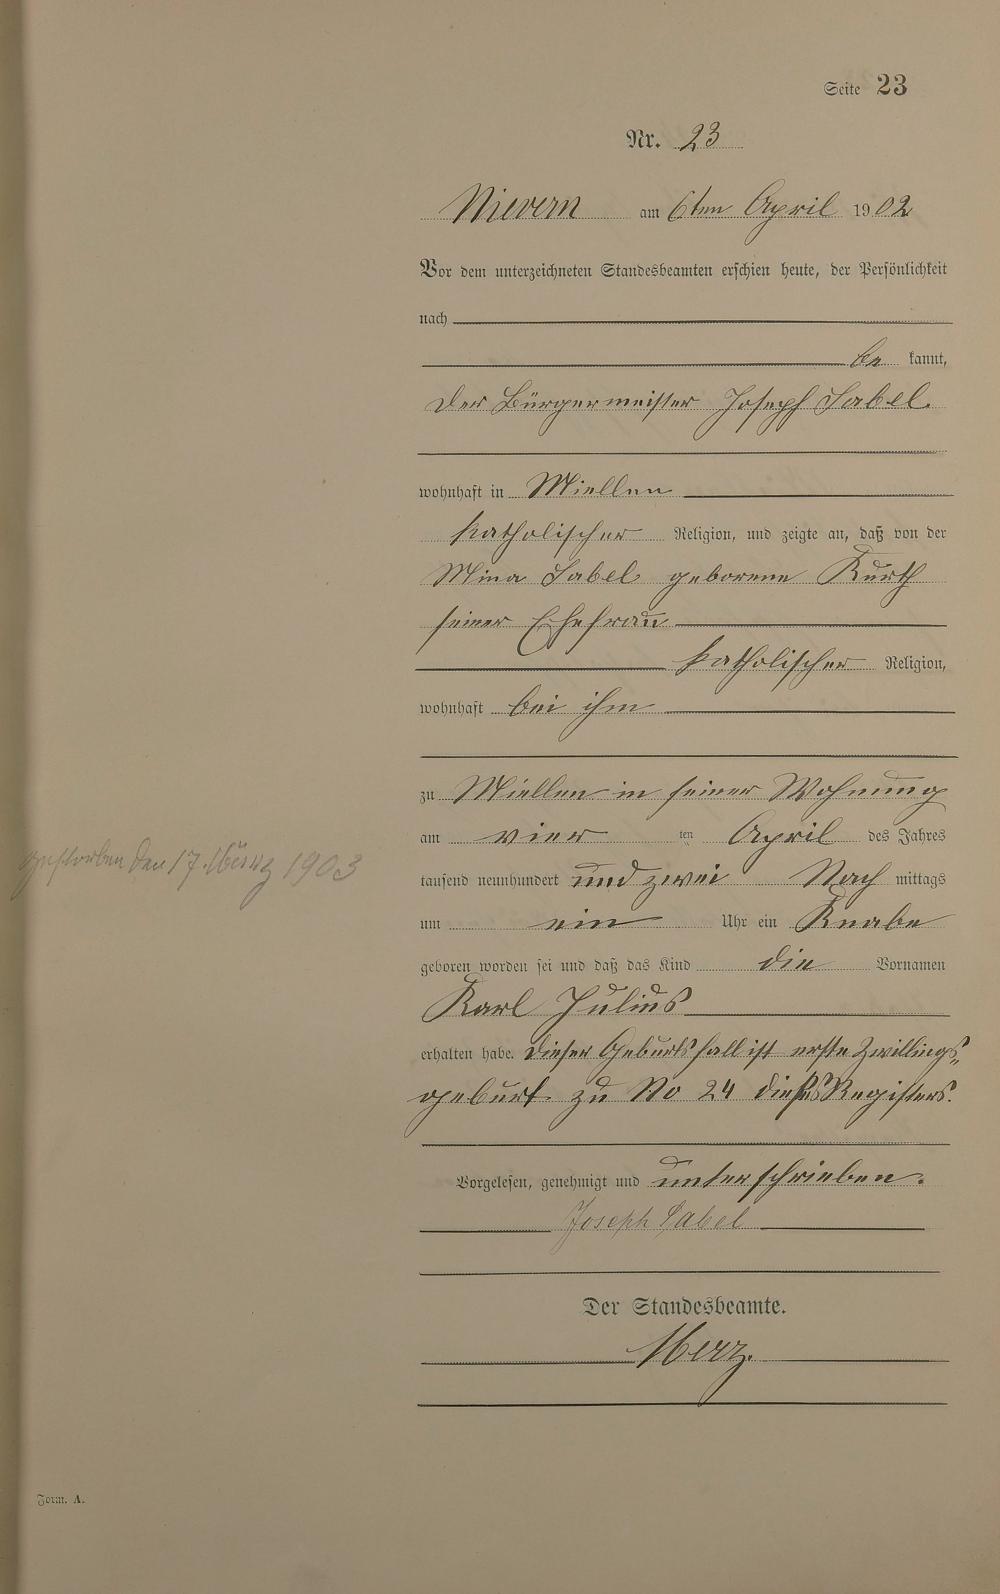 Seite 23
Nr. 23
Nievern am 6ten April 1902
Vor dem unterzeichneten Standesbeamten erschien heute, der Persönlichkeit
nach
be kannt,
der Bürgermeister Joseph Sabel
wohnhaft in Miellen
katholischer Religion, und zeigte an, daß von der
Mina Sabel geborene Kurth
seiner Ehefrau
katholischer Religion,
wohnhaft bei ihm
zu Miellen in seiner Wohnung
am vier ten April des Jahres
tausend neunhundert und zwei Nach mittags
um ein Uhr ein Knabe
geboren worden sei und daß das Kind die Vornamen
Karl Julius
erhalten habe. Dieser Geburtsfall ist erste Zwillings-
geburt zu No 24 dieses Registers.
Vorgelesen, genehmigt und unterschrieben.
Joseph Sabel
Der Standesbeamte.
Merz.
gestorben den 17. März 1903
Form. A.